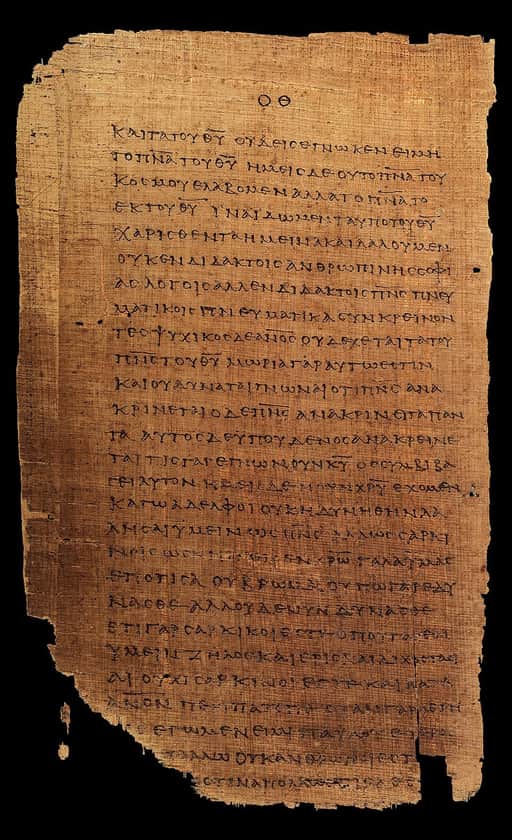 ΟΘ
ΚΑΙΤΑΤΟΥΘ̅Υ̅ ΟΥΔΕΙϹΕΓΝΩΚΕΝΕΙΜΗ
ΤΟΠ̅Ν̅Α̅ΤΟΥΘ̅Υ̅ ΗΜΕΙϹΔΕΟΥΤΟΠ̅Ν̅Α̅ΤΟΥ
ΚΟϹΜΟΥΕΛΑΒΟΜΕΝΑΛΛΑΤΟΠ̅Ν̅Α̅ΤΟ
ΕΚΤΟΥΘ̅Υ̅ ΙΝΑΙΔΩΜΕΝΤΑΥΠΟΤΟΥΘ̅Υ̅
ΧΑΡΙϹΘΕΝΤΑΗΜΕΙΝΑΚΑΙΛΑΛΟΥΜΕΝ
ΟΥΚΕΝΔΙΔΑΚΤΟΙϹΑΝΘΡΩΠΙΝΗϹϹΟΦΙ
ΑϹΛΟΓΟΙϹΑΛΛΕΝΔΙΔΑΚΤΟΙϹΠ̅Ν̅Ϲ̅ ΠΝΕΥ
ΜΑΤΙΚΟΙϹΠΝΕΥΜΑΤΙΚΑϹΥΝΚΡΕΙΝΟΝ
ΤΕϹΨΥΧΙΚΟϹΔΕΑ̅Ν̅Ο̅Ϲ̅ΟΥΔΕΧΕΤΑΙΤΑΤΟΥ
Π̅Ν̅Ϲ̅ΤΟΥΘ̅Υ̅ ΜΩΡΙΑΓΑΡΑΥΤΩΕϹΤΙΝ
ΚΑΙΟΥΔΥΝΑΤΑΙΓΝΩΝΑΙΟΤΙΠ̅Ν̅Ϲ̅ ΑΝΑ
ΚΡΙΝΕΤΑΙΟΔΕΠ̅Ν̅Ϲ̅ ΑΝΑΚΡΙΝΕΙΤΑΠΑΝ
ΤΑ ΑΥΤΟϹΔΕΥΠΟΥΔΕΝΟϹΑΝΑΚΡΕΙΝΕ
ΤΑΙΤΙϹΓΑΡΕΓΝΩΝΟΥΝΚ̅Υ̅ ΟϹϹΥΝΒΙΒΑ
ϹΕΙΑΥΤΟΝΗΜΕΙϹΔΕΝΟΥΝΧ̅Ρ̅Υ̅ ΕΧΟΜΕΝ
ΚΑΓΩΑΔΕΛΦΟΙΟΥΚΗΔΥΝΗΘΗΝΛΑ
ΛΗϹΑΙΥΜΕΙΝΩϹΠ̅Ν̅Ϲ̅ ΑΛΛΩϹϹΑΡΚΙ
ΝΟΙϹΩϹΝΗΠΙΟΙϹΕΝΧ̅Ρ̅Ω̅ ΓΑΛΑΥΜΑϹ
ΕΠΟΤΙϹΑ ΟΥΒΡΩΜΑ ΟΥΠΩΓΑΡΕΔΥ
ΝΑϹΘΕ ΑΛΛΟΥΔΕΝΥΝ ΔΥΝΑϹΘΕ
ΕΤΙΓΑΡϹΑΡΚΙΚΟΙΕϹΤΕΟΠΟΥΓΑΡΕΝ
ΥΜΕΙΝΖΗΛΟϹΚΑΙΕΡΙϹΚΑΙΔΙΧΟϹΤΑϹΙ
ΑΙ ΟΥΧΙϹΑΡΚΙΝΟΙΕϹΤΕΚΑΙΚΑΤΑ
Α̅Ν̅Ο̅Ν̅ ΠΕΡΙΠΑΤΕΙΤΕ ΟΤΑΝΓΑΡΛΕΓΗ
ΕΓΩΜΕΝΕΙΜΙΠΑΥΛΟΥ ΕΤΕΡΟ
ΟΥΚΑΝΘΡΩΠΟΙΕϹΤ